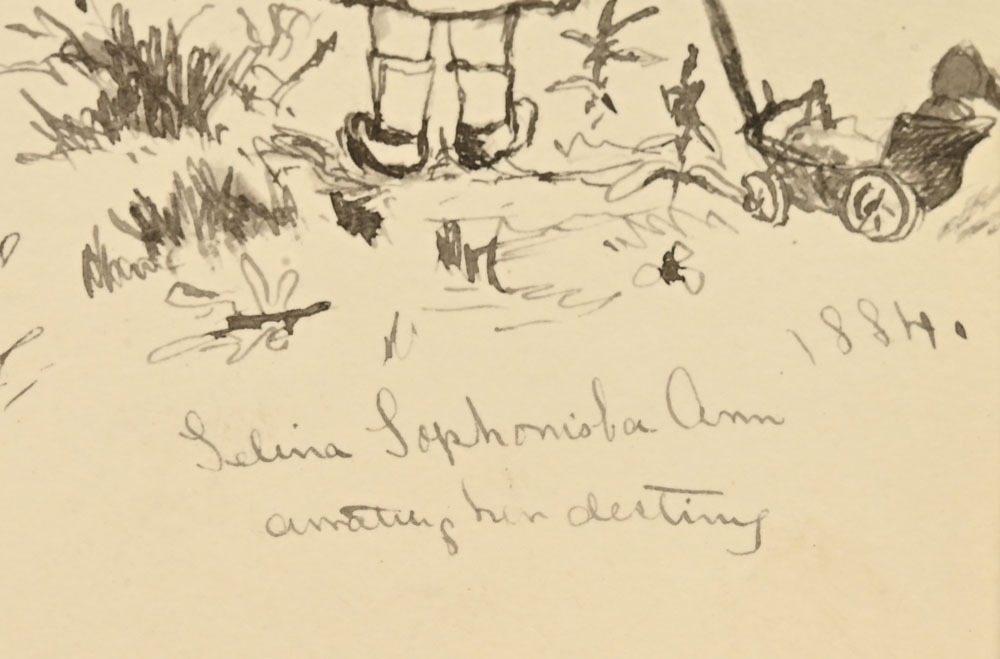 1884.
Selina Sophonisba Ann
awaiting her destiny